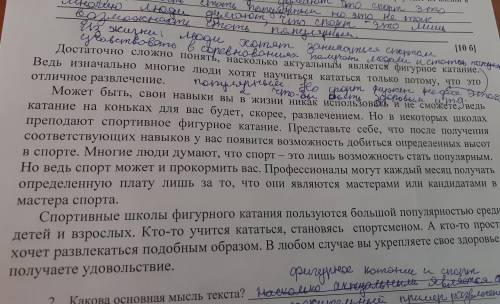 люди думают, что спорт – это лишь
возможность стать популярным.
Из жизни: люди хотят заниматься спортом
[10 б]
Достаточно сложно понять, насколько актуальным является фигурное катание.
Ведь изначально многие люди хотят научиться кататься только потому, что это
отличное развлечение.
Может быть, свои навыки вы в жизни никак использовать не сможете, ведь
катание на коньках для вас будет, скорее, развлечением. Но в некоторых школах
преподают спортивное фигурное катание. Представьте себе, что после получения
соответствующих навыков у вас появится возможность добиться определенных высот
в спорте. Многие люди думают, что спорт – это лишь возможность стать популярным.
Но ведь спорт может и прокормить вас. Профессионалы могут каждый месяц получать
определенную плату лишь за то, что они являются мастерами или кандидатами в
мастера спорта.
Спортивные школы фигурного катания пользуются большой популярностью среди
детей и взрослых. Кто-то учится кататься, становясь спортсменом. А кто-то прост
хочет развлекаться подобным образом. В любом случае вы укрепляете свое здоровье
получаете удовольствие.
фигурное катание и спорт
2. Какова основная мысль текста? насколько актуальным является